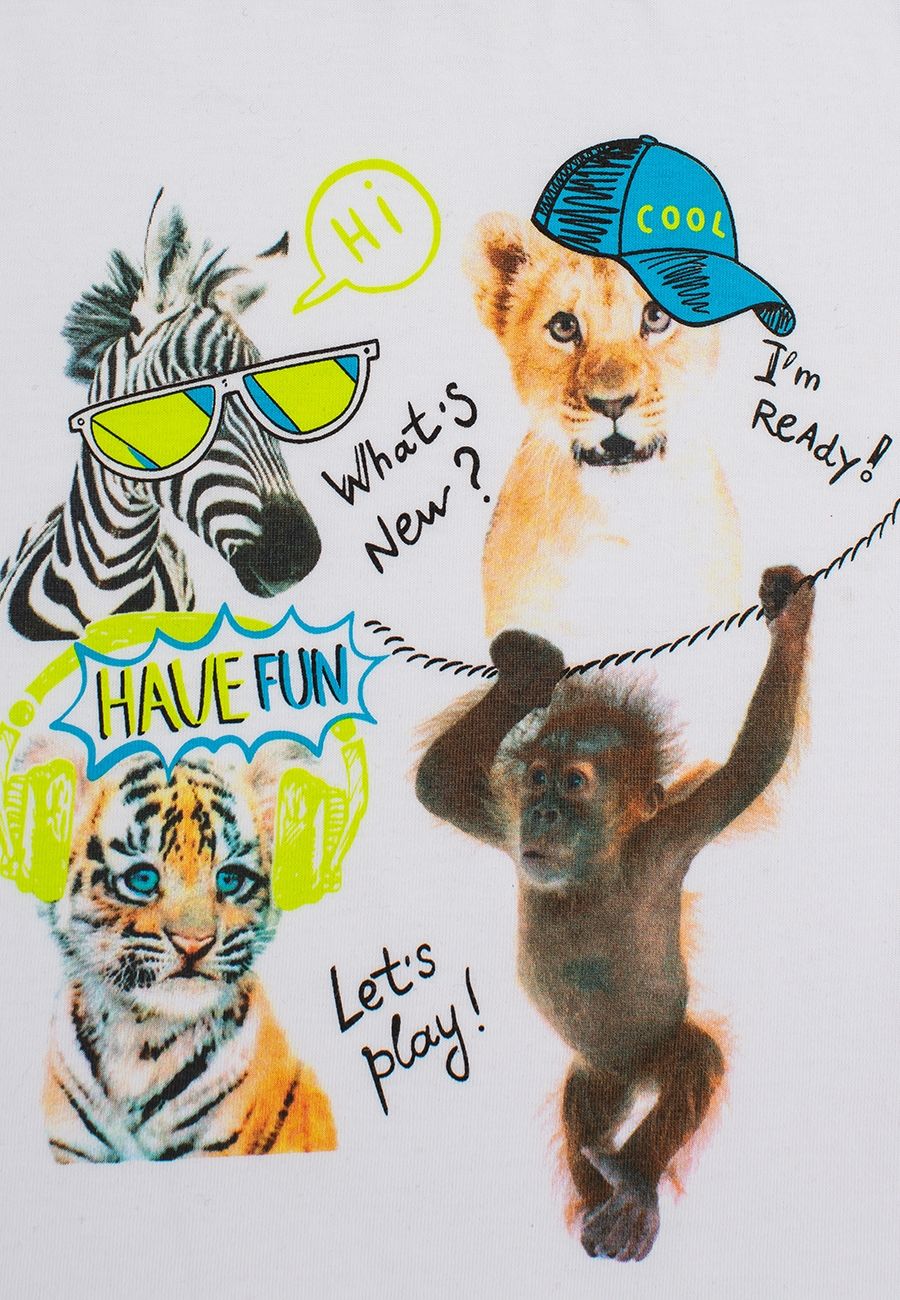 Hi
COOL
I'm
ReAdy!
What's
New?
HAVE FUN
Let's
play!